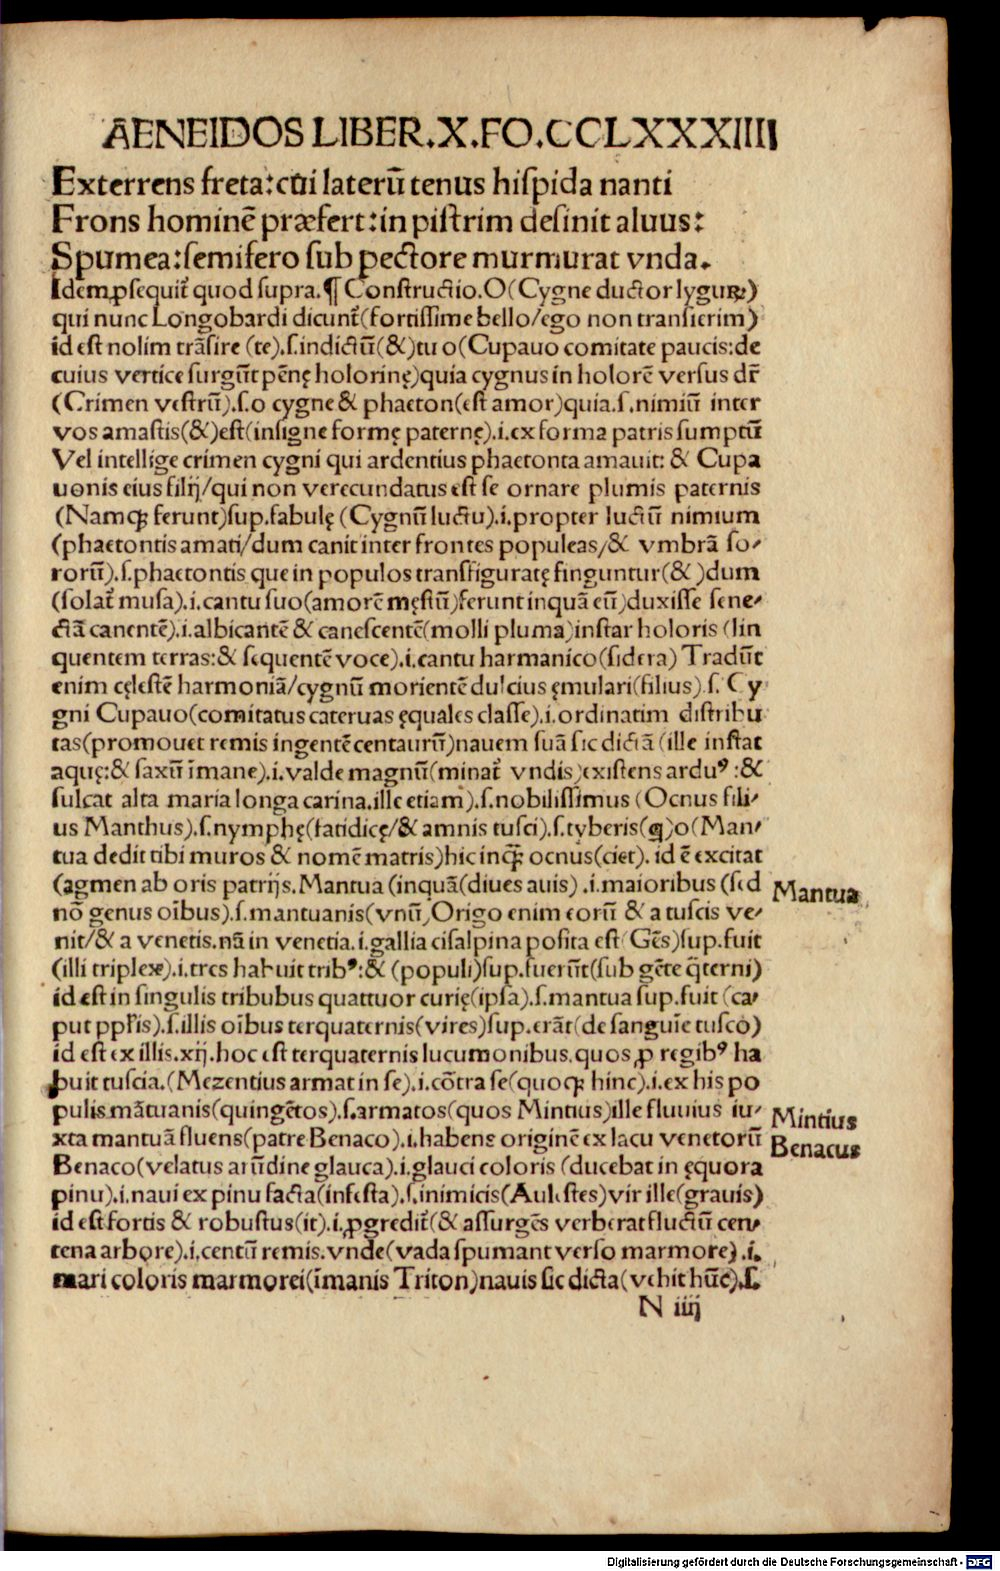 AENEIDOS LIBER.X.FO.CCLXXXIIII
Exterrens freta:cui laterū tenus hiſpida nanti
Frons hominē præfert:in piſtrim deſinit aluus:
Spumea:ſemifero ſub pectore murmurat vnda.
Idem ꝓſequit̄ quod ſupra.¶ Conſtructio.O(Cygne ductor lyguꝝ)
qui nunc Longobardi dicunt̄(fortiſſime bello/ego non tranſierim)
id eſt nolim trāſire (te).ſ.indictū(&)tu o(Cupauo comitate paucis:de
cuius vertice ſurgūt pēnę holorinę)quia cygnus in holorē verſus dr̄
(Crimen veſtrū).ſ.o cygne & phaeton(eſt amor)quia.ſ.nimiū inter
vos amaſtis(&)eſt(inſigne formę paternę).i.ex forma patris ſumptū
Vel intellige crimen cygni qui ardentius phaetonta amauit: & Cupa
uonis eius filij/qui non verecundatus eſt ſe ornare plumis paternis
(Namꝗ ferunt)ſup.fabulę (Cygnū luctu).i.propter luctū nimium
(phaetontis amati/dum canit inter frontes populeas/& vmbrā ſo/
rorū).ſ.phaetontis que in populos transfiguratę finguntur(& )dum
(ſolat̄ muſa).i.cantu ſuo(amorē męſtū)ferunt inquā eū)duxiſſe ſene/
ctā canentē).i.albicantē & caneſcentē(molli pluma)inſtar holoris (lin
quentem terras:& ſequentē voce).i.cantu harmanico(ſidera) Tradūt
enim cęleſtē harmoniā/cygnū morientē dulcius ęmulari(filius).ſ. Cy
gni Cupauo(comitatus cateruas ęquales claſſe).i.ordinatim diſtribu
tas(promouet remis ingentē centaurū)nauem ſuā ſic dictā (ille inſtat
aquę:& ſaxū īmane).i.valde magnū(minat̄ vndis)exiſtens arduꝰ :&
ſulcat alta maria longa carina.ille etiam).ſ.nobiliſſimus (Ocnus fili/
us Manthus).ſ.nymphę(fatidicę/& amnis tuſci).ſ.tyberis(ꝗ)o(Man/
tua dedit tibi muros & nomē matris)hic inꝗ̄ ocnus(ciet). id ē excitat
(agmen ab oris patrijs.Mantua (inquā(diues auis) .i.maioribus (ſed
nō genus oībus).ſ.mantuanis(vnū)Origo enim eorū & a tuſcis ve/
nit/& a venetis.nā in venetia.i.gallia ciſalpina poſita eſt(Gēs)ſup.fuit
(illi triplex).i.tres habuit tribꝰ:& (populi)ſup.fuerūt(ſub gēte q̄terni)
id eſt in ſingulis tribubus quattuor curię(ipſa).ſ.mantua ſup.fuit (ca/
put ppl̄is).ſ.illis oībus terquaternis(vires)ſup.erāt(de ſanguīe tuſco)
id eſt ex illis.xij.hoc eſt terquaternis lucumonibus.quos ꝓ regibꝰ ha
buit tuſcia.(Mezentius armat in ſe).i.cōtra ſe(quoꝗ hinc).i.ex his po
pulis mātuanis(quingētos).ſ.armatos(quos Mintius)ille fluuius iu/
xta mantuā fluens(patre Benaco).i.habens originē ex lacu venetorū
Benaco(velatus arūdine glauca).i.glauci coloris (ducebat in ęquora
pinu).i.naui ex pinu facta(infeſta).ſ.inimicis(Auleſtes)vir ille(grauis)
id eſt fortis & robuſtus(it).i.ꝓgredit̄(& aſſurgēs verberat fluctū cen/
tena arbore).i.centū remis.vnde(vada ſpumant verſo marmore).i.
mari coloris marmorei(īmanis Triton)nauis ſic dicta(vehit hūc).ſ.
N iiij
Mantua
Mintius
Benacus
Digitalisierung gefördert durch die Deutsche Forschungsgemeinschaft - DFG